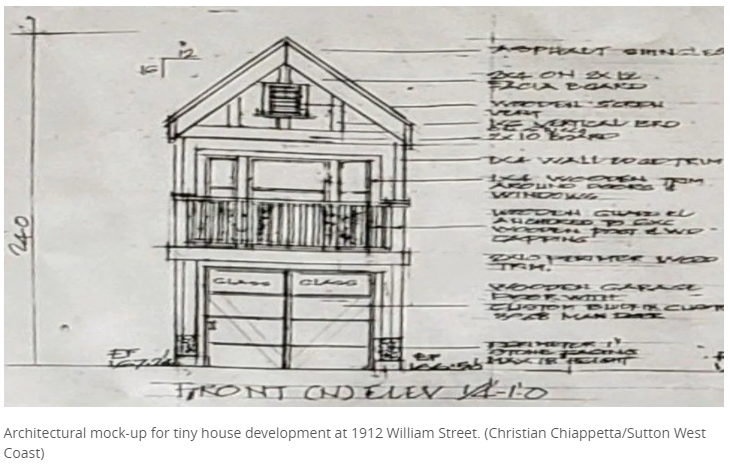 12
ASPHALT SHINGLES
2X4 ON 2X12
FACIA BOARD
WOODEN SCREEN
VENT
VERTICAL BRD
2X10 BOARD
1X4 WALL EDGE TRIM
1X4 WOODEN TRIM
AROUND DOORS &
WINDOWS
WOODEN
ANCHORED TO 6X6
WOODEN POST & WD
CAPPING
2X10 PERIMETER WOOD
TRIM.
GLASS GLASS
WOODEN GARAGE
DOOR WITH
CUSTOM BUILT IN
MAN DOOR
PERIMETER 1'
STONE FACING
MAX 18" HEIGHT
EF
EF
FRONT (N) ELEV 1/4-1-0
Architectural mock-up for tiny house development at 1912 William Street. (Christian Chiappetta/Sutton West
Coast)